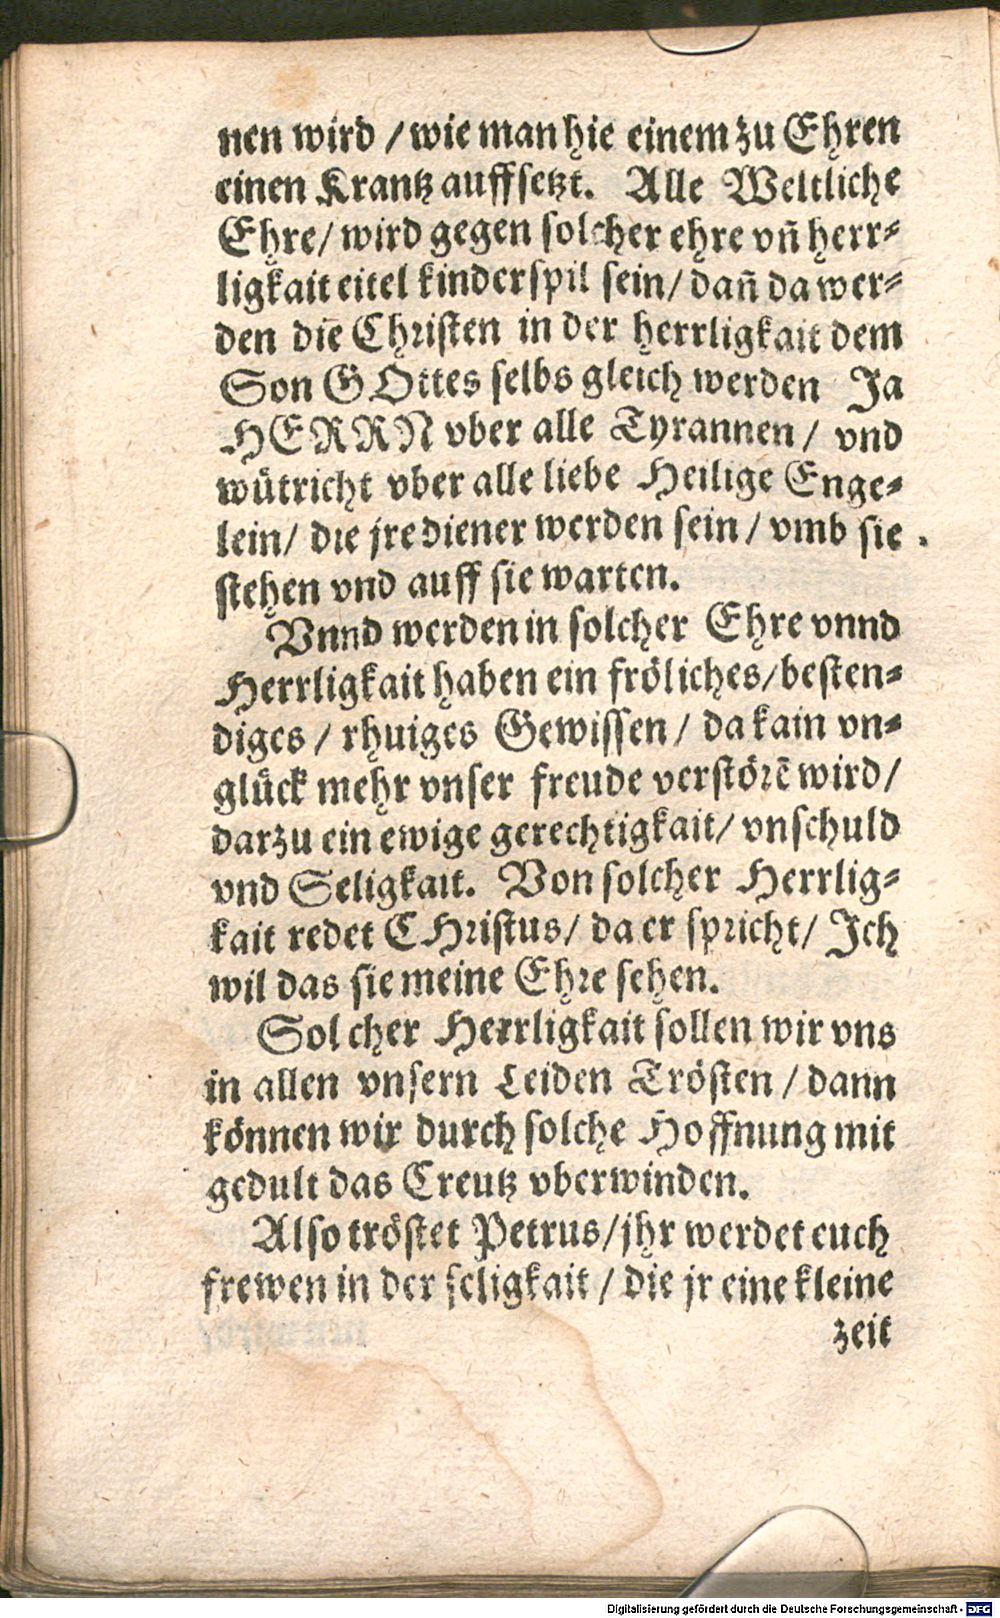 nen wird / wie man hie einem zu Ehren
einen Krantz auffsetzt. Alle Weltliche
Ehre/ wird gegen solcher ehre vñ herr⸗
ligkait eitel kinderspil sein/ dañ da wer⸗
den die Christen in der herrligkait dem
Son GOttes selbs gleich werden Ja
HERRN vber alle Tyrannen / vnd
wütricht vber alle liebe Heilige Enge⸗
lein/ die jre diener werden sein / vmb sie
stehen vnd auff sie warten.
Vnnd werden in solcher Ehre vnnd
Herrligkait haben ein fröliches/ besten⸗
diges / rhuiges Gewissen / da kain vn⸗
glück mehr vnser freude verstörẽ wird/
darzu ein ewige gerechtigkait/ vnschuld
vnd Seligkait. Von solcher Herrlig⸗
kait redet CHristus/ da er spricht/ Ich
wil das sie meine Ehre sehen.
Solcher Herrligkait sollen wir vns
in allen vnsern Leiden Trösten / dann
können wir durch solche Hoffnung mit
gedult das Creutz vberwinden.
Also tröstet Petrus/ jhr werdet euch
frewen in der seligkait / die jr eine kleine
zeit
Digitalisierung gefördert durch die Deutsche Forschungsgemeinschaft - DFG